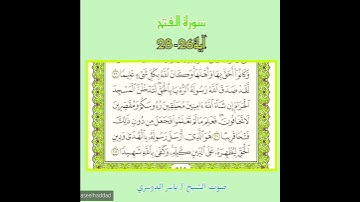 سورة الفتح
آية 26-28
وَكَانُوا أَحَقَّ بِهَا وَأَهْلَهَا وَكَانَ اللَّهُ بِكُلِّ شَيْءٍ عَلِيمًا ٢٦
لَقَدْ صَدَقَ اللَّهُ رَسُولَهُ الرُّءْيَا بِالْحَقِّ لَتَدْخُلُنَّ الْمَسْجِدَ
الْحَرَامَ إِن شَاءَ اللَّهُ ءَامِنِينَ مُحَلِّقِينَ رُءُوسَكُمْ وَمُقَصِّرِينَ
لَا تَخَافُونَ فَعَلِمَ مَا لَمْ تَعْلَمُوا فَجَعَلَ مِن دُونِ ذَٰلِكَ
فَتْحًا قَرِيبًا ٢٧ هُوَ الَّذِي أَرْسَلَ رَسُولَهُ بِالْهُدَىٰ وَدِينِ
الْحَقِّ لِيُظْهِرَهُ عَلَى الدِّينِ كُلِّهِ وَكَفَىٰ بِاللَّهِ شَهِيدًا ٢٨
صوت الشيخ / ياسر الدوسري
aseelhaddad